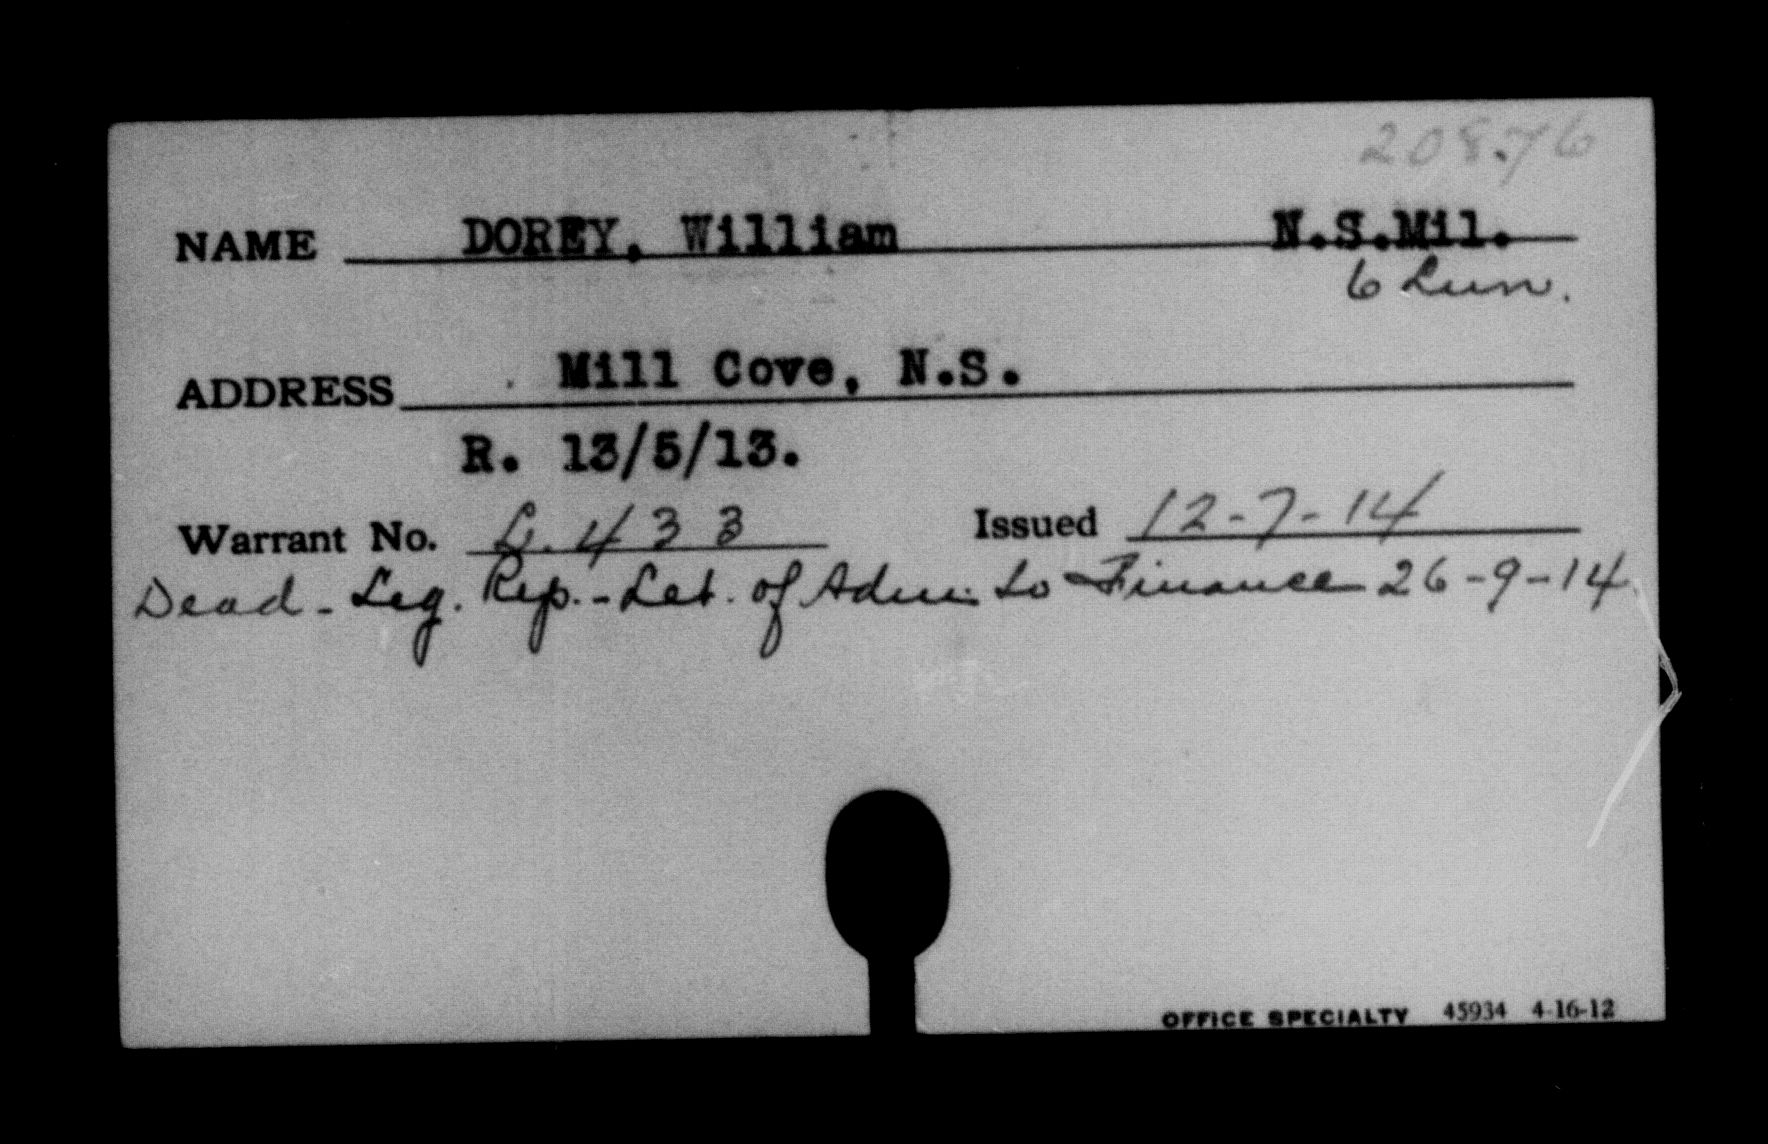 20876
NAME DOREY, William N.S.Mil.
6 Lun.
ADDRESS Mill Cove, N.S.
R. 13/5/13.
Warrant No. L.433 Issued 12-7-14
Dead - Leg. Rep. - Let. of Adm. to Finance 26-9-14
OFFICE SPECIALTY 45934 4-16-12